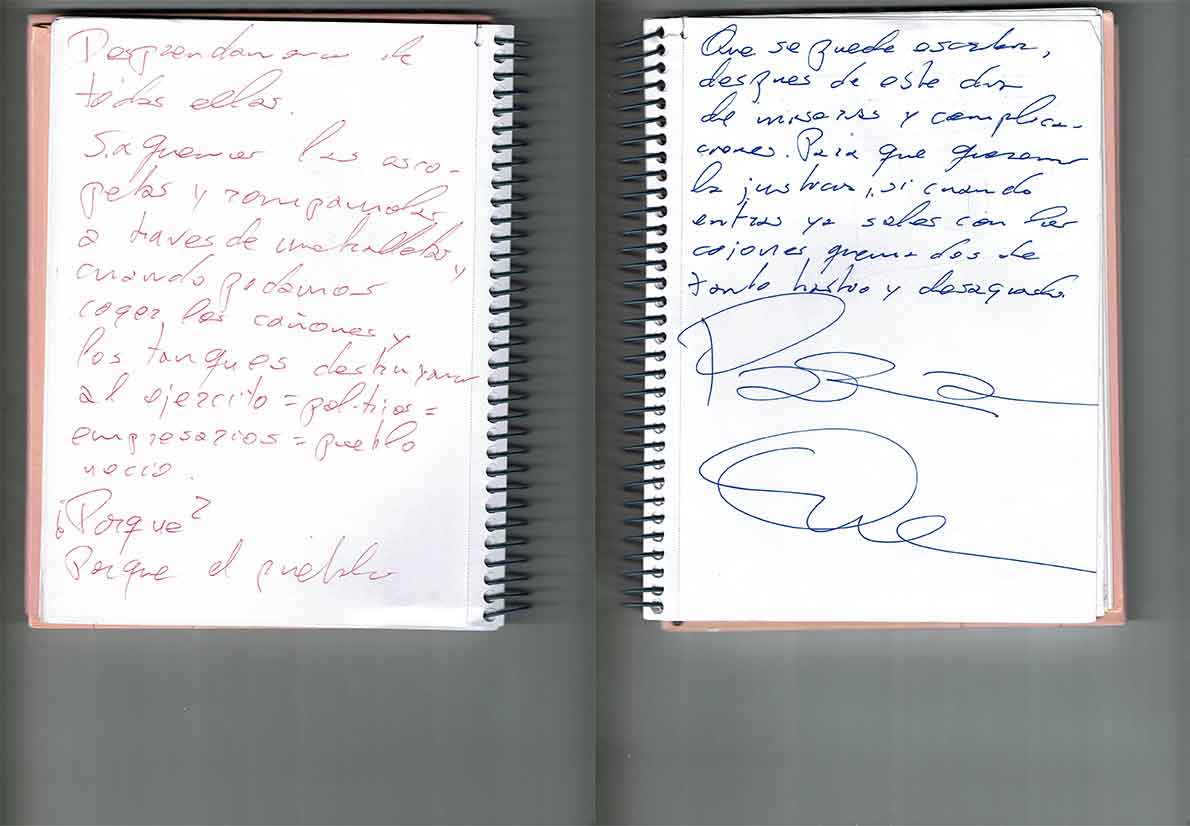 Desprendamonos de
todas ellas.
Saquemos las esco-
petas y rompamolas
a traves de metralletas, y
cuando podamos
coger los cañones y
los tanques destruyamos
al ejercito = politicos =
empresarios = pueblo
necio.
¿Porque?
Porque el pueblo
Que se puede escribir,
despues de este dia
de miserias y complica-
ciones. Para que queremos
la justicia, si cuando
entras ya sales con los
cojones quemados de
tanto hastio y desagrado.
Para
Que